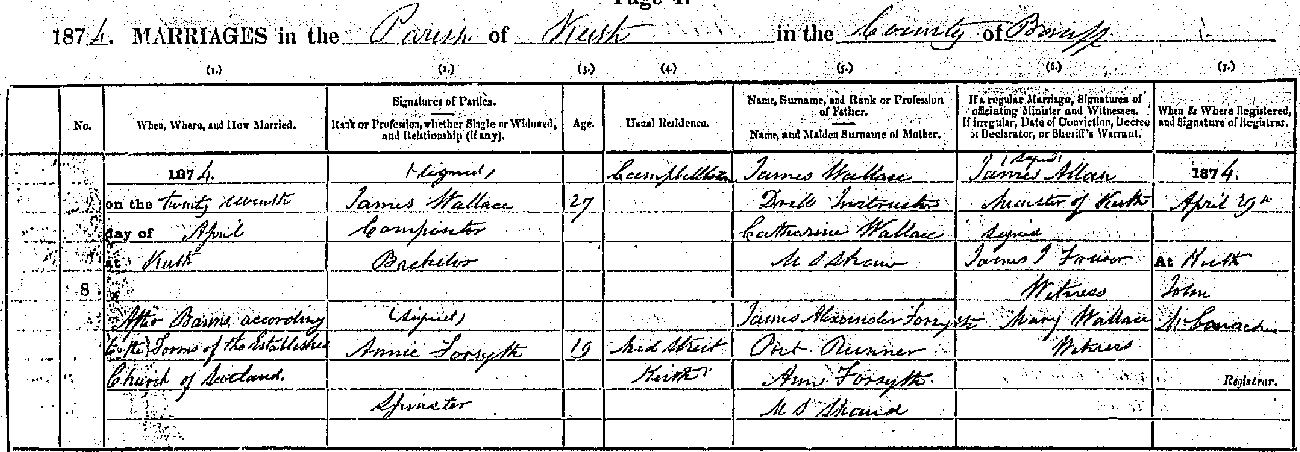 Page 4.
1874. MARRIAGES in the Parish of Keith in the County of Banff
(1.) (2.) (3.) (4.) (5.) (6.) (7.)
No.
When, Where, and How Married.
Signatures of Parties.
Rank or Profession, whether Single or Widowed, and Relationship (if any).
Age.
Usual Residence.
Name, Surname, and Rank or Profession of Father.
Name, and Maiden Surname of Mother.
If a regular Marriage, Signatures of officiating Minister and Witnesses.
If irregular, Date of Conviction, Decree of Declarator, or Sheriff's Warrant.
When & Where Registered, and Signature of Registrar.
8
1874.
on the twenty seventh
day of April
at Keith
After Banns according
to the Forms of the Established
Church of Scotland.
(signed)
James Wallace
Compositor
Bachelor
(signed)
Annie Forsyth
Spinster
27
19
Campbelltown
Mid Street
Keith
James Wallace
Drill Instructor
Catharine Wallace
M S Shaw
James Alexander Forsyth
Post Runner
Ann Forsyth
M S
(signed)
James Allan
Minister of Keith
signed
James
Witness
Mary Wallace
Witness
1874.
April 29th
At Keith
John
Registrar.